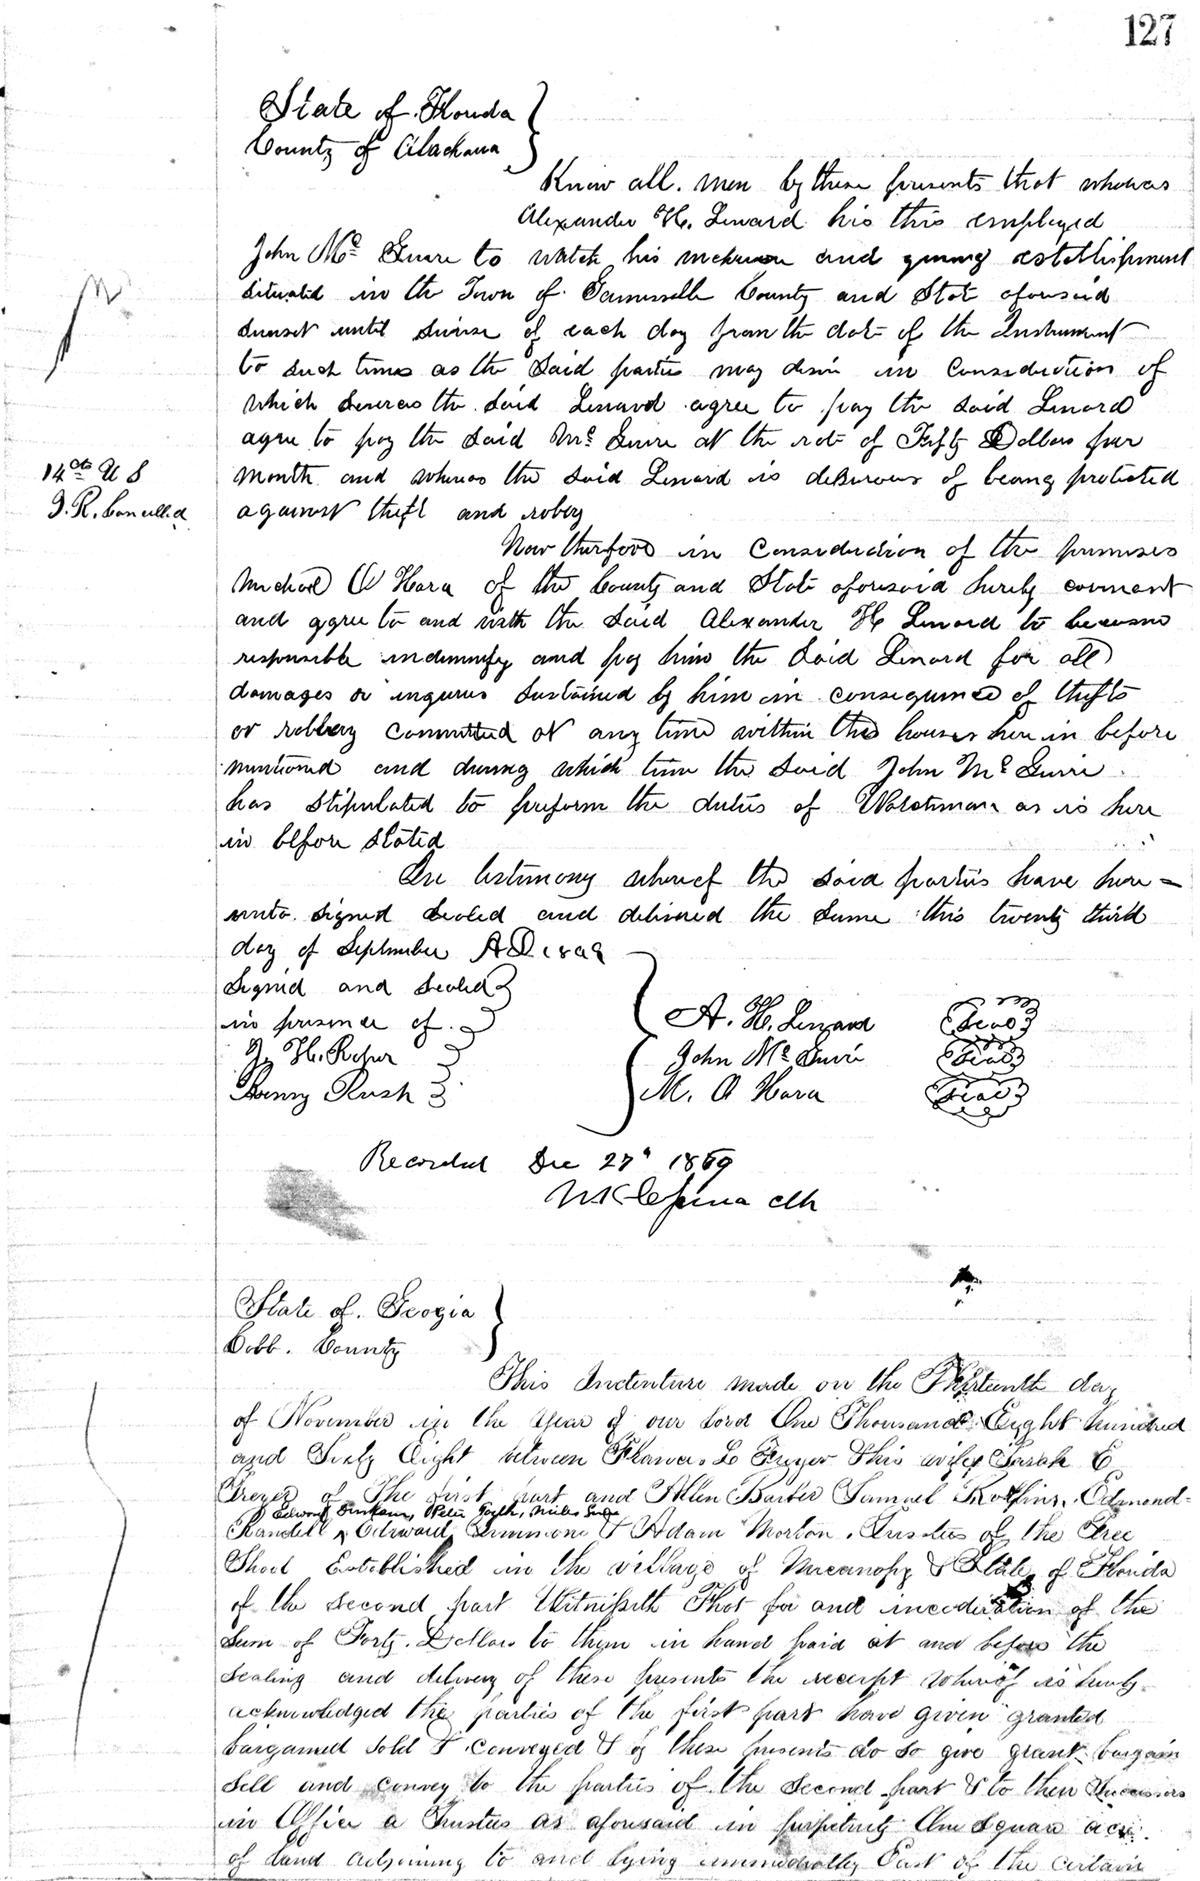 127
State of Florida
County of Alachua
Know all men by these presents that whereas
Alexander H. Lenard his this employed
John Mc Guire to watch his and establishment
Situated in the Town of Gainesville County and State aforesaid
sunset until sunrise of each day from the date of the Instrument
to such times as the Said parties may desire in Consideration of
which the said Lenard agree to pay the said Lenard
agree to pay the said Mc Guire at the rate of Fifty Dollars per
Month and whereas the said Lenard is desirous of being protected
14 cts U S
I. R. Cancelled
against theft and robery
Now therefore in Consideration of the premises
Michael O Hara of the County and State aforesaid hereby covenant
and agree to and with the said Alexander H Lenard to become
responsible indemnify and pay him the Said Lenard for all
damages or ingures Sustained by him in consequence of thefts
or robbery committed at any time within the houses here in before
mentioned and during which time the said John Mc Guire
has Stipulated to preform the duties of Watchman as is here
in before stated
In testimony whereof the said parties have here =
unto signed sealed and delivered the same this twenty third
day of September AD
Signed and Sealed
in presence of
H. Roper
Henry Rush
A. H. Lenard (Seal)
John Mc Guire (Seal)
M. O Hara (Seal)
Recorded Dec 27" 1869
Clk
State of Georgia
Cobb County
This Indenture made on the Thirteenth day
of November in the Year of our Lord One Thousand Eight hundred
and Sixty Eight between L Freyer & his wife Sarah E
Freyer of The first part and Allen Barber Samuel Edmond=
Edward Miles
Randell Edward & Adam Morton, Trustees of the Free
Shool Established in the village of Micanopy & State of Florida
of the second part Witnesseth That for and inconsideration of the
Sum of Forty Dollars to them in hand paid at and before the
Sealing and delivery of these presents the receipt whereof is hereby
acknowledged the parties of the first part have given granted
bargained sold & conveyed & by these presents do so give grant bargain
Sell and convey to the parties of the second part & to their Successors
in Office a Trustees as aforesaid in perpetuity One Square acre
of land adjoining to and lying immediatly East of the certain